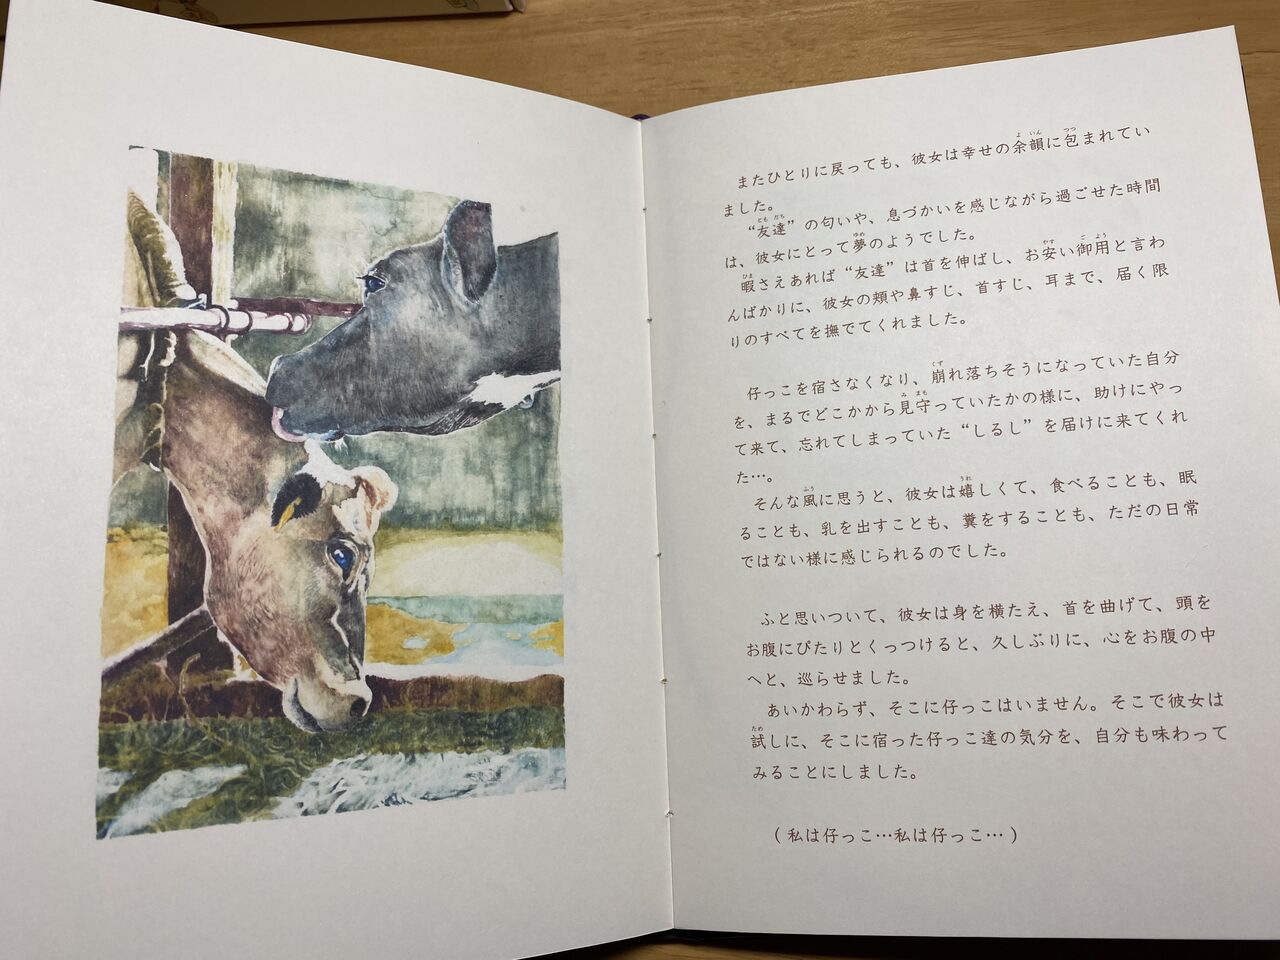 またひとりに戻っても、彼女は幸せの余韻に包まれてい
ました。
“友達”の匂いや、息づかいを感じながら過ごせた時間
は、彼女にとって夢のようでした。
暇さえあれば“友達”は首を伸ばし、お安い御用と言わ
んばかりに、彼女の頬や鼻すじ、首すじ、耳まで、届く限
りのすべてを撫でてくれました。
仔っこを宿さなくなり、崩れ落ちそうになっていた自分
を、まるでどこかから見守っていたかの様に、助けにやっ
て来て、忘れてしまっていた“しるし”を届けに来てくれ
た…。
そんな風に思うと、彼女は嬉しくて、食べることも、眠
ることも、乳を出すことも、糞をすることも、ただの日常
ではない様に感じられるのでした。
ふと思いついて、彼女は身を横たえ、首を曲げて、頭を
お腹にぴたりとくっつけると、久しぶりに、心をお腹の中
へと、巡らせました。
あいかわらず、そこに仔っこはいません。そこで彼女は
試しに、そこに宿った仔っこ達の気分を、自分も味わって
みることにしました。
(私は仔っこ…私は仔っこ…)